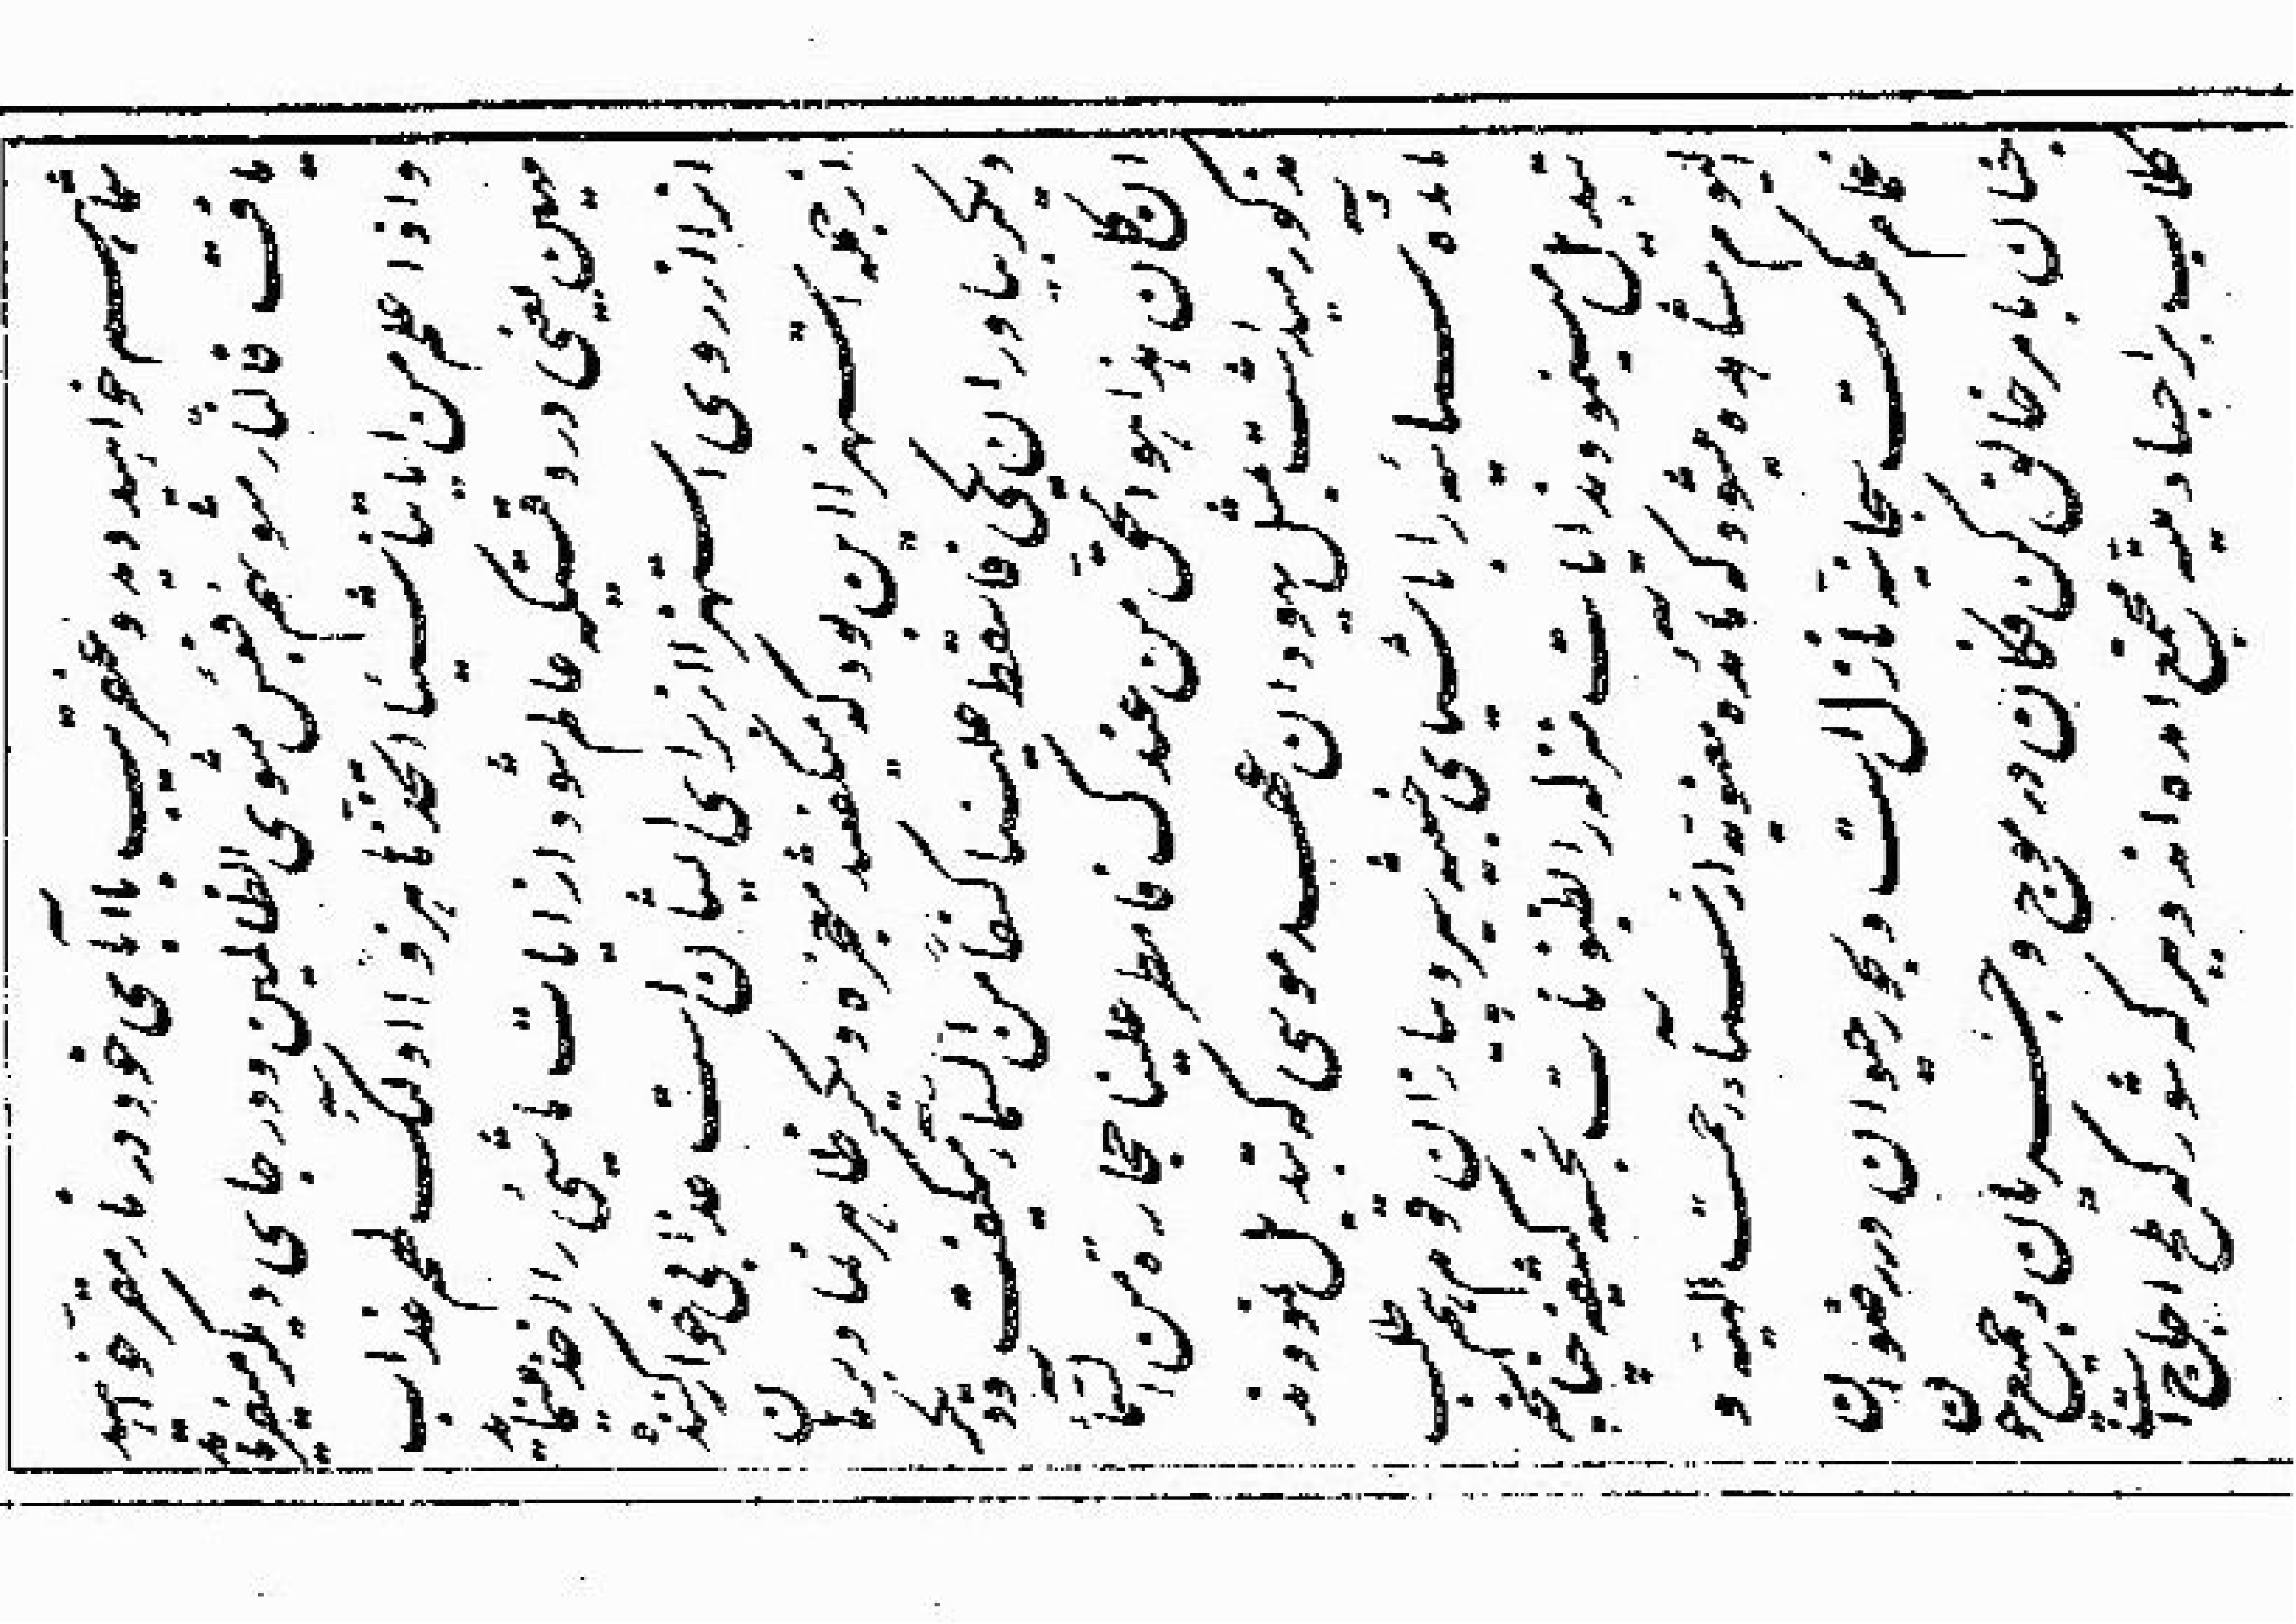 شما هم خواهید دید و غضب با آبای خود در نار مقر خواهید
یافت فالنار موسهم فبئس مثوی الظالمین و در جای دیگر میفرماید
و اذا علم من ایاتنا شیئا اتخذها هزوا اولئک لهم عذاب
مهین یعنی در وقتیکه عالم شود از ایات ما شیئی را اخذ مینماید
انرا از روی استهزا از برای ایشان است عذابی خوار کننده
ازجمله استهزا این بود که میگفتند معجزه دیگر ظاهر نما و برهان
دیگر بیاور ان یکی فاسقط علینا کسفا من السماء میگفت و دیگری
ان کان هذا هو الحق من عندک فامطر علینا حجارة من السماء
مذکور میداشت مثل یهودان عهد موسی که تبدیل نمودند
مائده سمائیه را باشیای خبیثه سیر و پیاز ان قوم هم طلب
تبدیل مینمودند ایات منزله را بظنونات نجسه کثیفه خبیثه
مشاهده میشود که مائده معنویه از سماء رحمت الهیه و
غمام مکرمت سبحانیه نازل است و بحور حیوان در رضوان
جنان بامر خالق کن فکان در موج و جریان و جمیع چون
کلاب بر اجساد میته مجتمع امده اند و ببرکه شور که ملح اجاج است